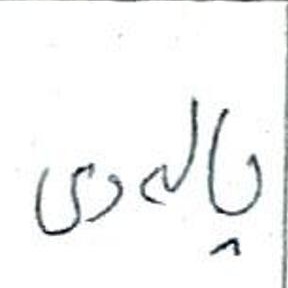 پاله دی